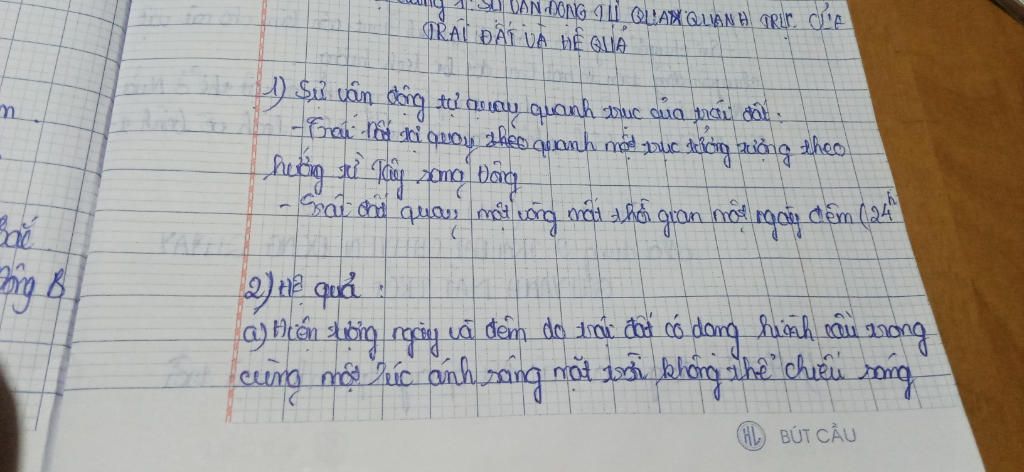 SỰ VẬN ĐỘNG TỰ QUAY QUANH TRỤC CỦA
TRÁI ĐẤT VÀ HỆ QUẢ
1) Sự vận động tự quay quanh trục của trái đất:
- Trái đất tự quay theo quanh một trục tưởng tượng theo
hướng từ Tây sang Đông
- Trái đất quay một vòng mất thời gian một ngày đêm (24h
2) Hệ quả:
a) Hiện tượng ngày và đêm do trái đất có dạng hình cầu trong
cùng một lúc ánh sáng mặt trời không thể chiếu sáng
m
Bắc
Đông B
HL BÚT CẦU